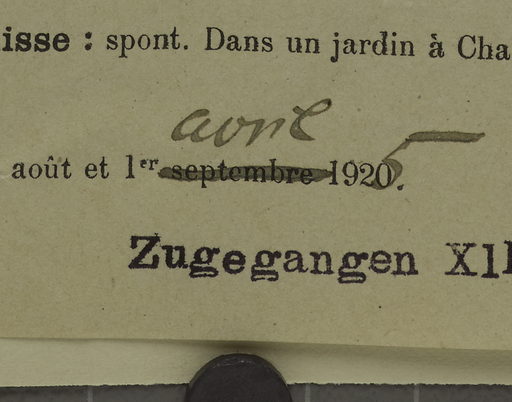 isse : spont. Dans un jardin à Cha
avril
août et 1er septembre 1925.
Zugegangen XI